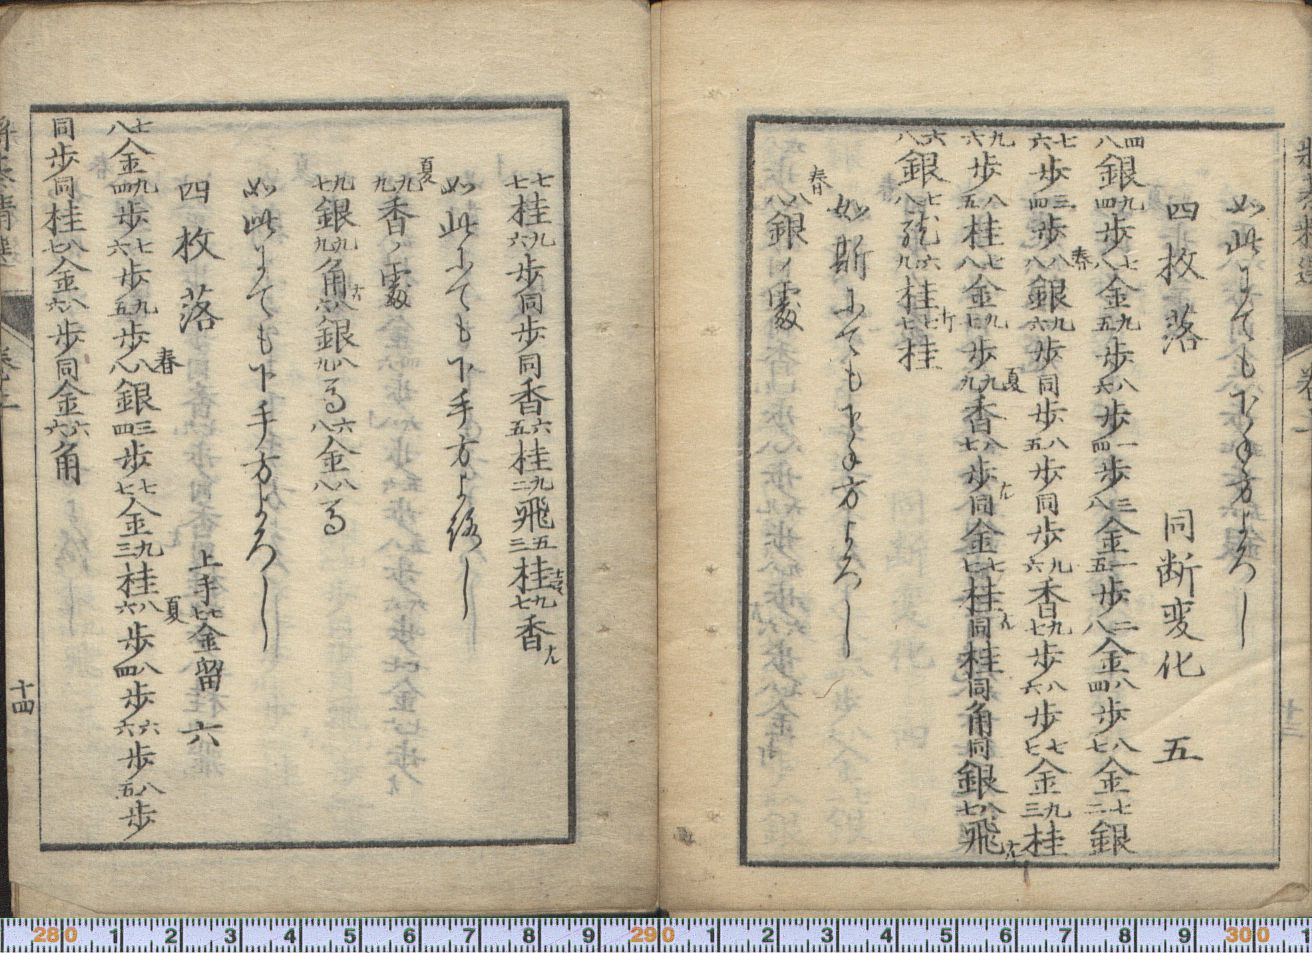 如此にてもよろし
四枚落 同断変化 五
四八銀九四歩七八金九五歩八六歩一四歩三八金一五歩二八金八四歩八七金七二銀
七六歩三四歩八八銀九六歩同歩八五歩同歩九六香九七歩八六歩七七金九三桂
九六歩八五桂七八金九七歩九九香八七歩同金七七桂同桂同角同銀八七飛
六八銀七八飛六九桂七七桂
如斯にても下手方よろし
八八銀ノ処
七七桂九六歩同歩同香六五桂九二飛五三桂九七香
如此にても下手方よろし
九九香ノ処
九七銀九九角八六銀八九る六八金八八る
如此にても下手方よろし
四枚落 上手七七金留 六
七八金九四歩七六歩九五歩八八銀三四歩七七金九三桂八六歩八四歩六六歩八五歩
同歩同桂八七金八六歩同金六六角
十四
280 1 2 3 4 5 6 7 8 9 290 1 2 3 4 5 6 7 8 9 300 1